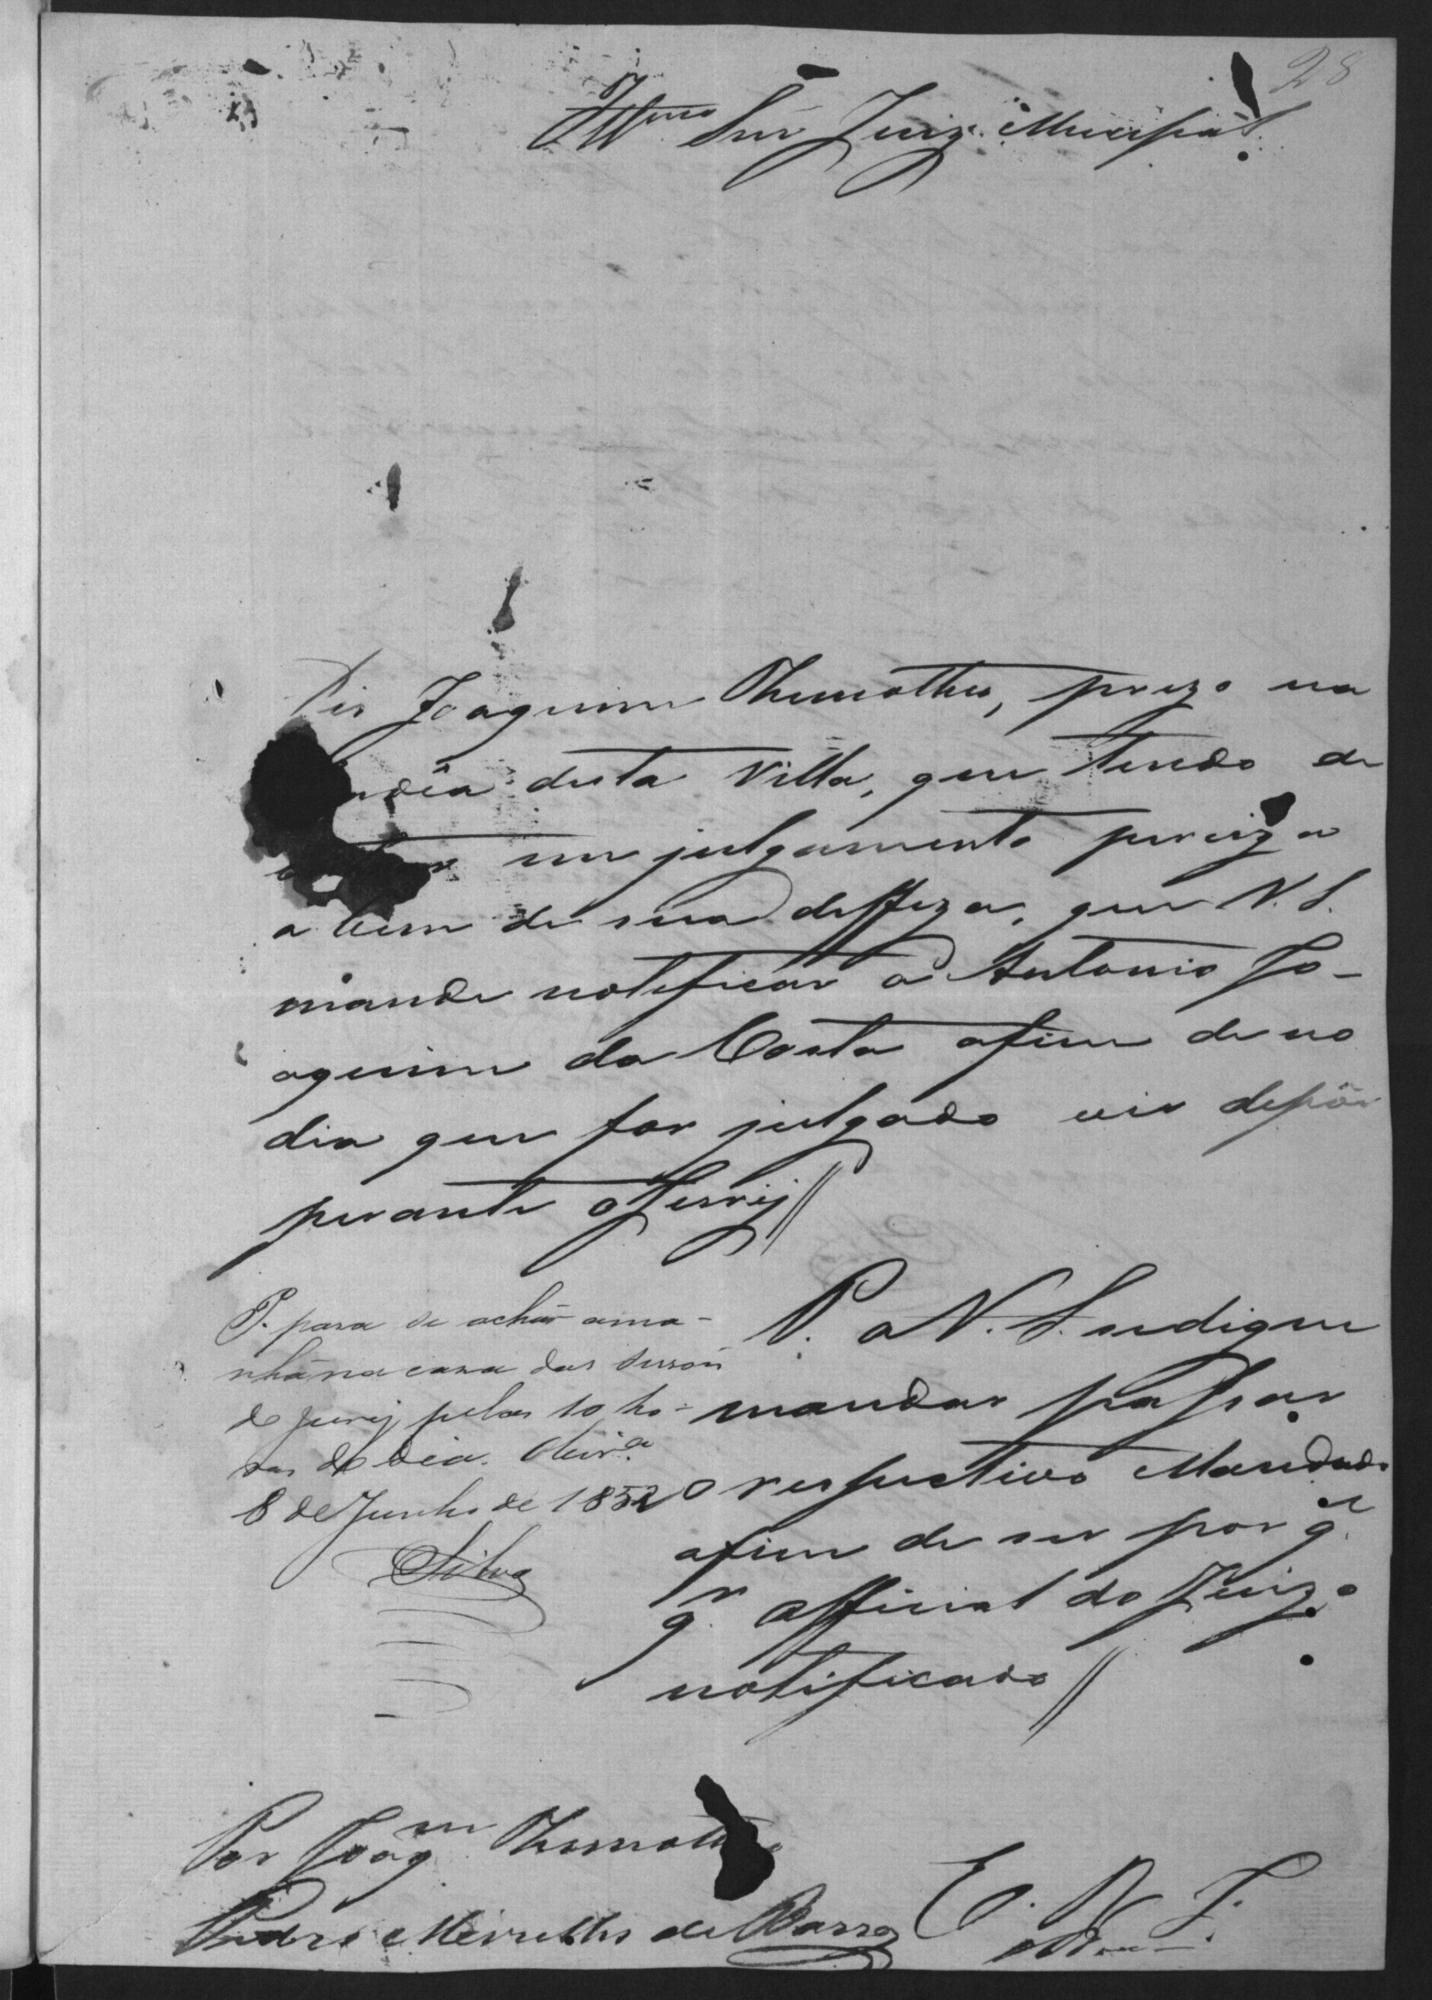 28
Illmo Snr Juiz Municipal
Diz Joaquim Themotheo, prezo na
cadêa desta Villa, que tendo de
entrar em julgamento perciza
a bem de sua deffeza, que V. S.
mande notificar a Antonio Jo-
aquim da Costa afim de no
dia que for julgado vir depôr
perante o Jurij //
P. a V. S. se digne
mandar passar
o respectivo Mandado
afim de ser por ql
qr official do Juizo
notificado //
P. para se achar ama-
nhã na casa das sessões
do Jurij pelas 10 ho-
ras do dia. Olivra
8 de Junho de 1852
Silva
E. R. M.
Por Joaqm Themotheo
Pedro Meirelles de Barros